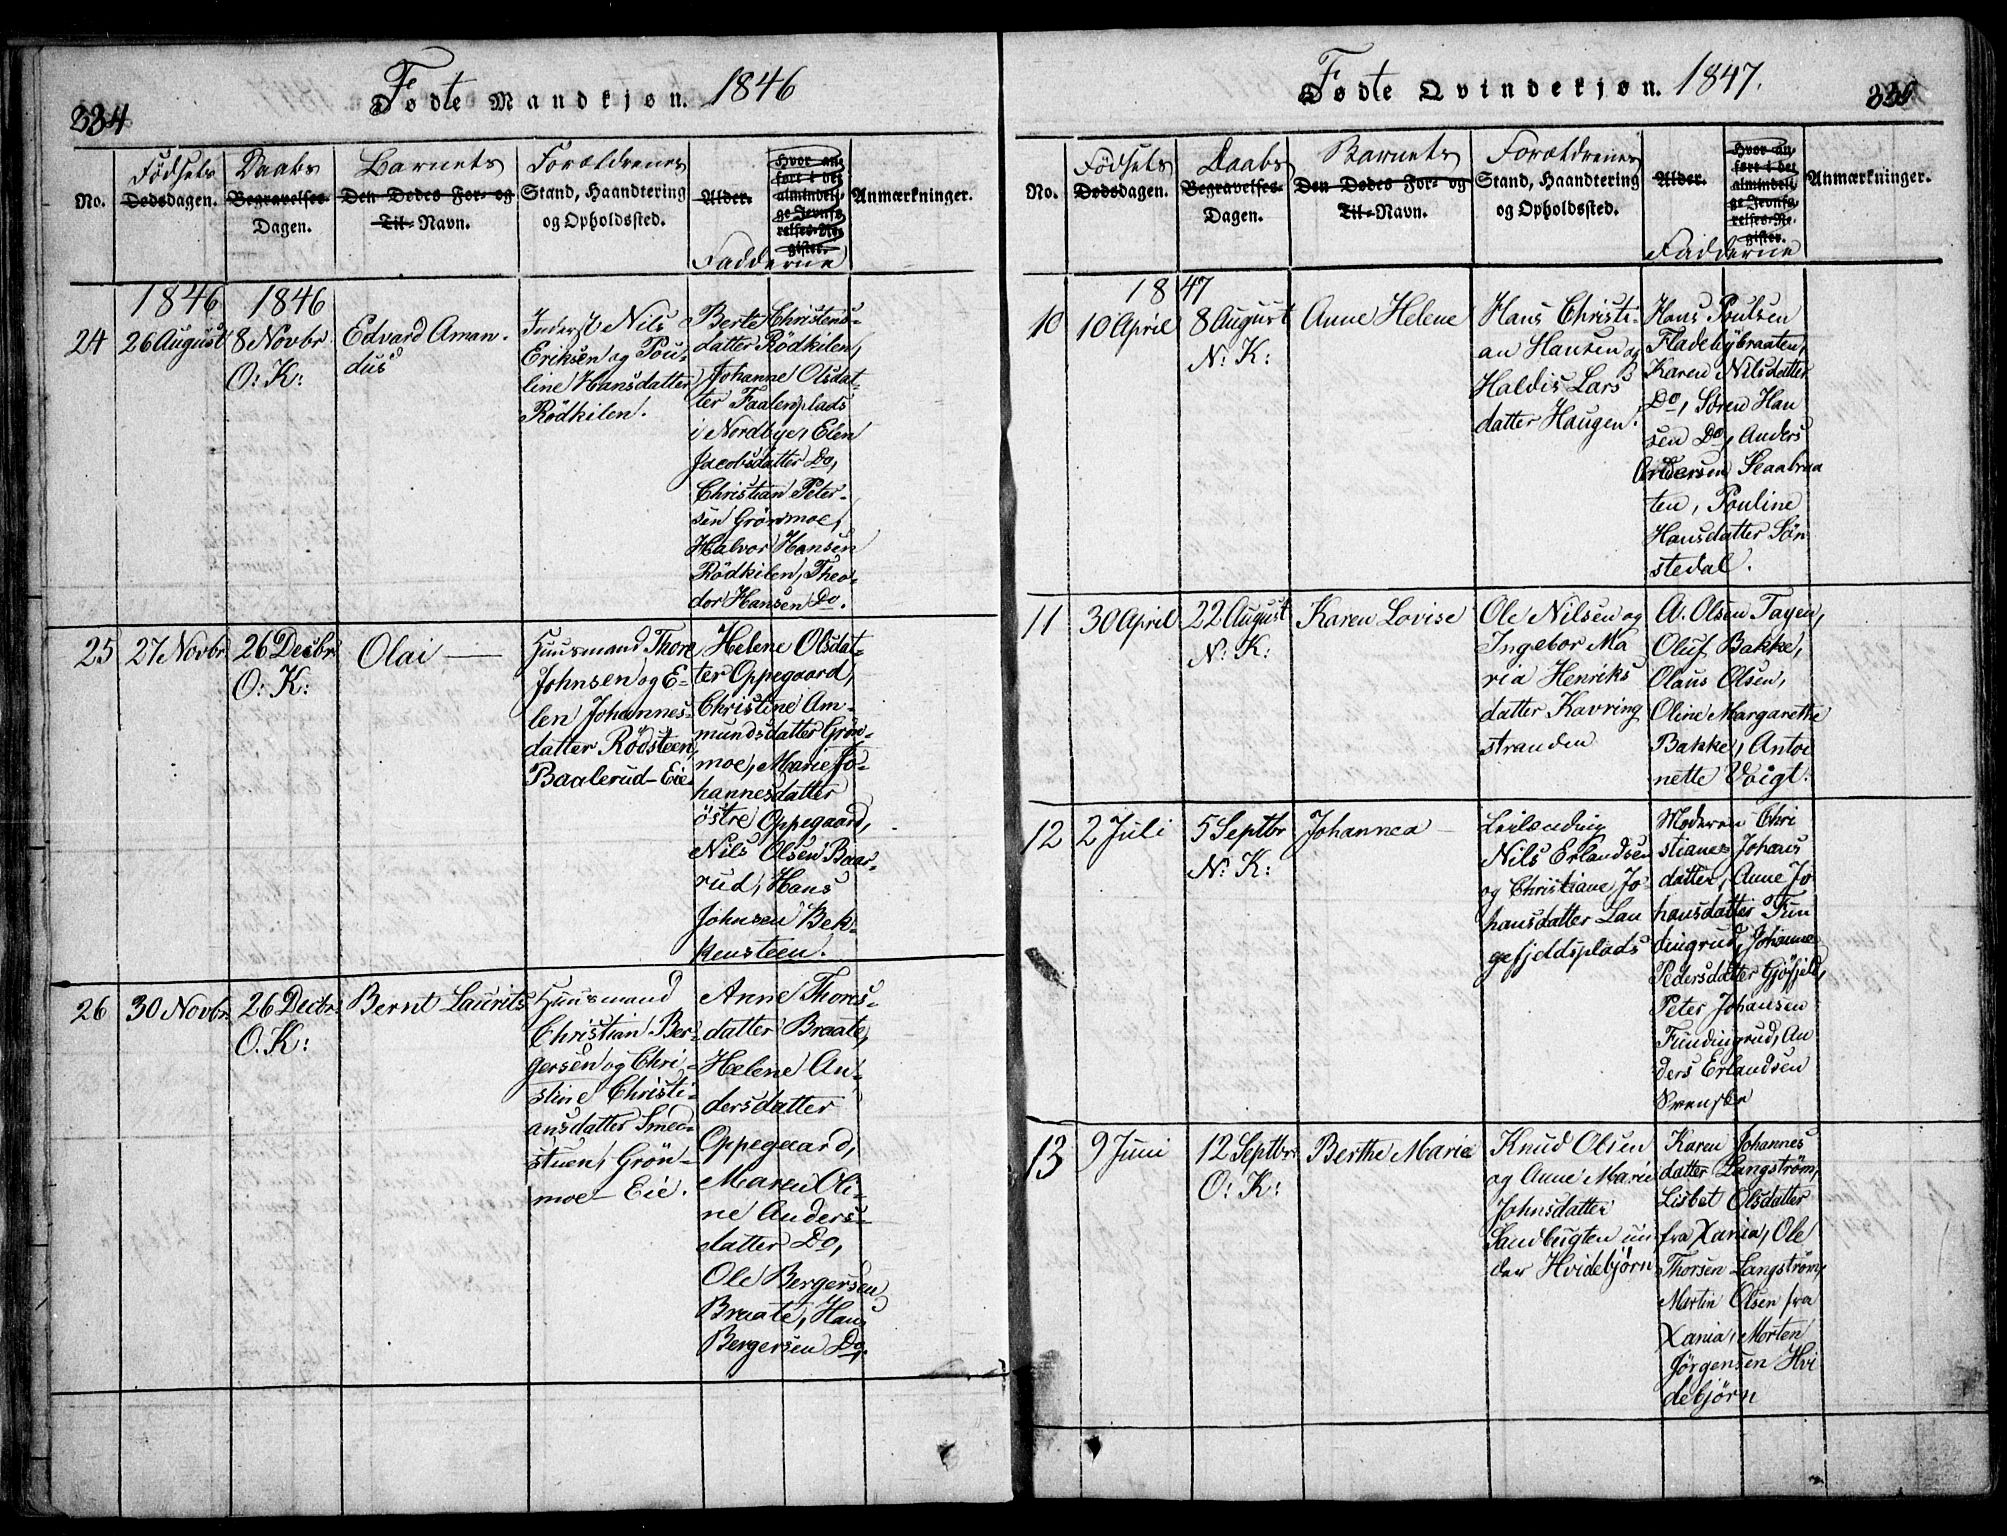 334
Fødte Mandkjøn. 1846
No.
Fødsels
Dødsdagen.
Daabs
Begravelses-
Dagen.
Barnets
Den Dødes For- og
Til-Navn.
Forældrenes
Stand, Haandtering
og Opholdssted.
Alder.
Hvor an-
ført i det
almindeli-
ge Jevnfø-
relses-Re-
gister.
Fadderne
Anmærkninger.
1846 1846
24
26 August
8 Novbr
O: K:
Edvard Aman-
dus
Inderst Nils
Eriksen og Pou-
line Hansdatter
Rödkilen.
Berte Christens-
datter Rödkilen,
Johanne Olsdat-
ter Faalensplads
i Nordbye, Elen
Jacobsdatter Do,
Christian Peter-
sen Grönmoe,
Halvor Hansen
Rödkilen, Theo-
dor Hansen Do.
25
27 Novbr
26 Decbr
O: K:
Olai
Huusmand Thore
Johnsen og E-
len Johannes-
datter Rödsteen,
Baalerud-Eie
Helene Olsdat-
ter Oppegaard,
Christine Am-
mundsdatter Grön-
moe, Marie Jo-
hannesdatter
östre Oppegaard,
Nils Olsen Baar-
rud, Hans
Johnsen Bek-
kensteen.
26
30 Novbr
26 Decbr
O. K:
Bernt Laurits
Huusmand
Christian Ber-
gersen og Chri-
stine Christi-
ansdatter Smed-
stuen, Grön-
moe-Eie.
Anne Thores-
datter Braate,
Helene An-
dersdatter
Oppegaard,
Maren Oli-
ne Anders-
datter Do,
Ole Bergersen
Braate, Hans
Bergersen Do,
335
Fødte Qvindekjøn. 1847.
No.
Fødsels
Dødsdagen.
Daabs
Begravelses-
Dagen.
Barnets
Den Dødes For- og
Til-Navn.
Forældrenes
Stand, Haandtering
og Opholdssted.
Alder.
Hvor an-
ført i det
almindeli-
ge Jevnfø-
relses-Re-
gister.
Fadderne
Anmærkninger.
1847
10
10 April
8 August
N: K:
Anne Helene
Hans Christi-
an Hansen og
Haldis Lars
datter Haugen.
Hans Poulsen
Fladebybraaten,
Karen Nilsdatter
Do, Sören Han
sen Do, Anders
Andersen Skaabraa
ten, Pouline
Hansdatter Sön
stedal.
11
30 April
22 August
N: K:
Karen Lovise
Ole Nilsen og
Ingebor Ma
ria Henriks
datter Kavring
stranden
A. Olsen Tayen,
Oluf Bakke,
Olaus Olsen,
Oline Margarethe
Bakke, Antoi
nette Voigt.
12
2 Juli
5 Septbr
N: K:
Johannea
Leilænding
Nils Erlandsen
og Christiane Jo-
hansdatter Lan
gefjeldsplads
Moderen Chri
stiane Johans
datter, Anne Jo
hansdatter Fun
dingrud, Johanne
Pedersdatter Gjöfjeld,
Peter Johansen
Fundingrud, An
ders Erlandsen
Svenske
13
9 Juni
12 Septbr
O: K:
Berthe Marie
Knud Olsen
og Anne Marie
Johnsdatter
Sandbugten un
der Hvidebjörn
Karen Johannes
datter Langström,
Lisbet Olsdatter
fra Xania, Ole
Thorsen Langström,
Martin Olsen fra
Xania, Morten
Jörgensen Hvi
debjörn